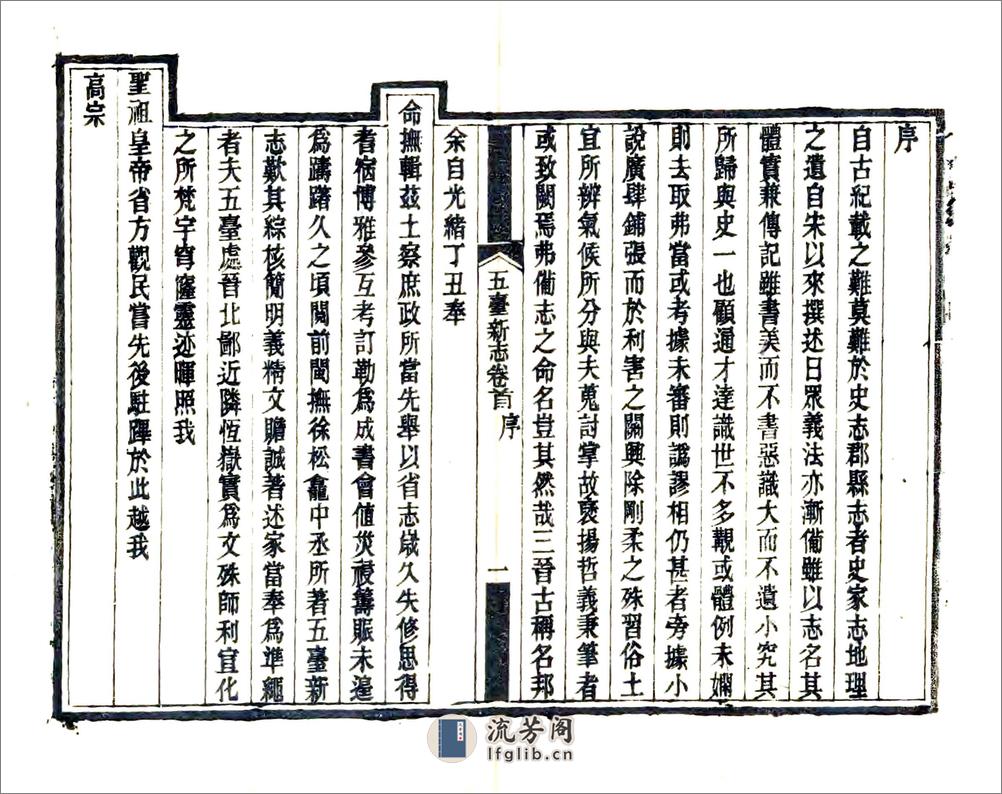 序
自古紀載之難莫難於史志郡縣志者史家志地理
之遺自宋以來撰述日眾義法亦漸備雖以志名其
體實兼傳記雖書美而不書惡識大而不遺小究其
所歸與史一也顧通才達識世不多觀或體例未嫻
則去取弗當或考據未審則譌謬相仍甚者旁據小
說廣肆鋪張而於利害之關興除剛柔之殊習俗土
宜所辨氣候所分與夫蒐討掌故裒揚哲義秉筆者
或致闕焉弗備志之命名豈其然哉三晉古稱名邦
五臺新志卷首 序
一
余自光緒丁丑奉
命撫輯茲土察庶政所當先舉以省志歲久失修思得
耆宿博雅參互考訂勒為成書會值災祲籌賑未遑
為躊躇久之頃閱前閩撫徐松龕中丞所著五臺新
志歎其綜核簡明義精文贍誠著述家當奉為準繩
者夫五臺處晉北鄙近隣恆嶽實為文殊師利宣化
之所梵宇穹窿靈迹暉照我
聖祖皇帝省方觀民嘗先後駐蹕於此越我
高宗
流芳阁
lfglib.cn